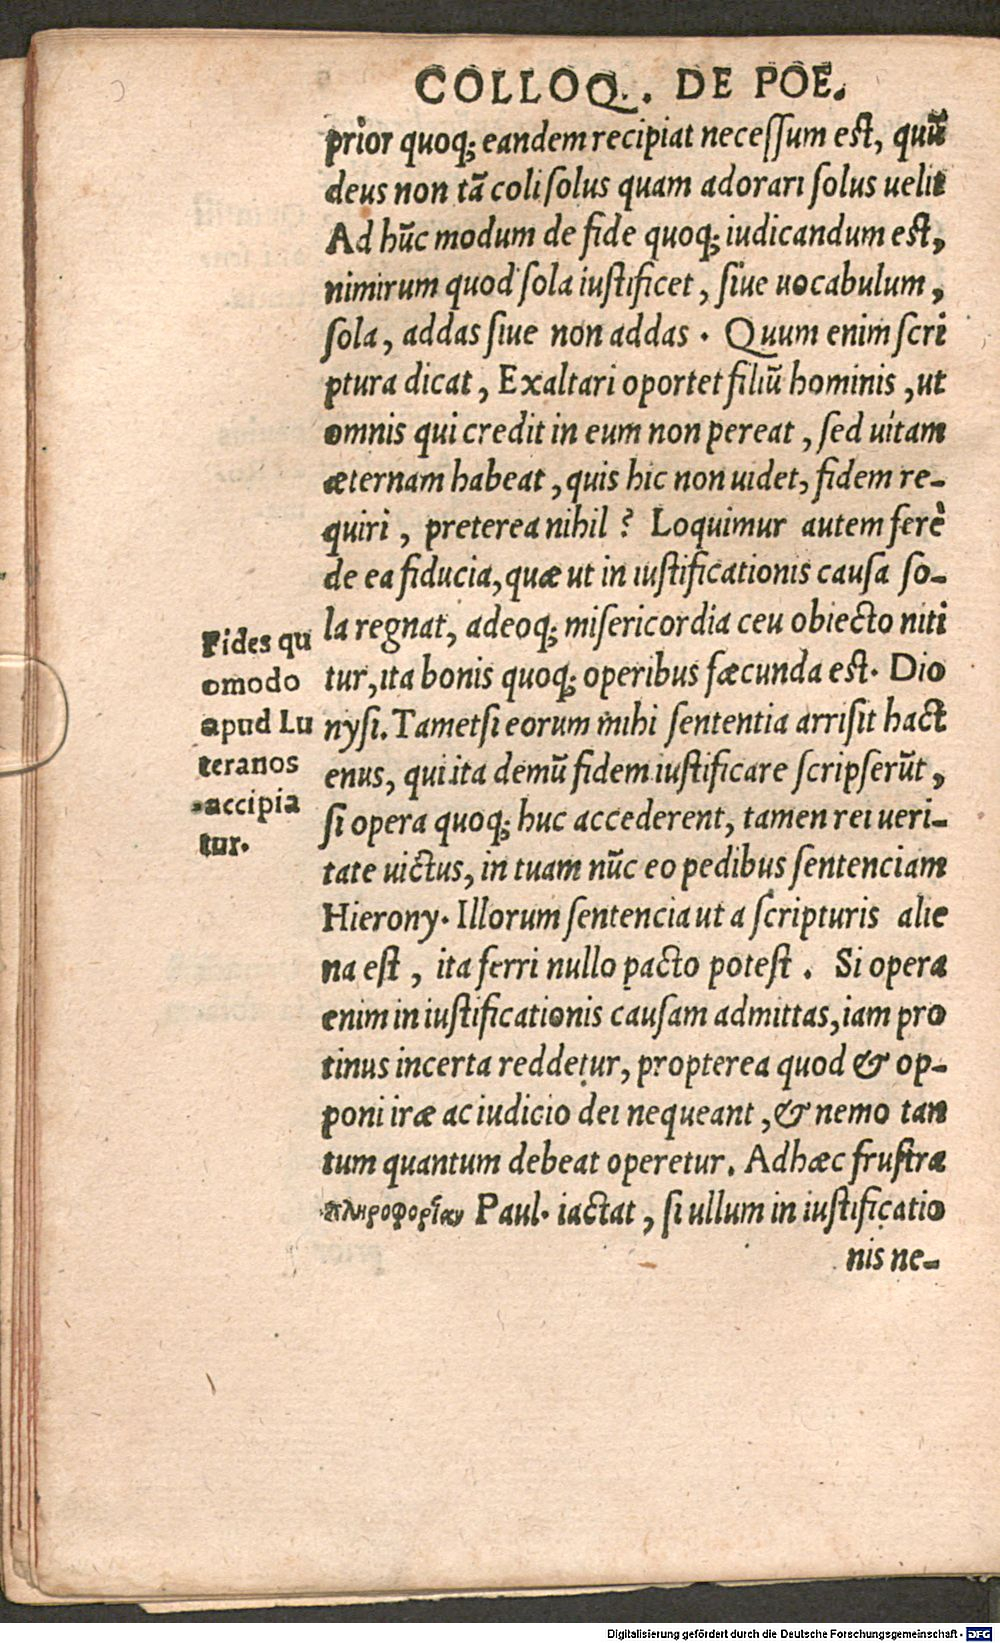 COLLOQ. . DE POE.
prior quoq; eandem recipiat neceſſum est, quũ
deus non tã coli ſolus quam adorari ſolus uelit
Ad hũc modum de fide quoq; iudicandum est,
nimirum quod ſola iuſtificet, ſiue uocabulum,
ſola, addas ſiue non addas. Quum enim ſcri
ptura dicat, Exaltari oportet filiũ hominis, ut
omnis qui credit in eum non pereat, ſed uitam
æternam habeat, quis hic non uidet, fidem re-
quiri, preterea nihil? Loquimur autem ferè
de ea fiducia, quæ ut in iuſtificationis cauſa ſo-
la regnat, adeoq; miſericordia ceu obiecto niti
Fides qu
omodo
apud Lu
teranos
accipia
tur.
tur, ita bonis quoq; operibus fæcunda est. Dio
nyſi. Tametſi eorum mihi ſententia arriſit hact
enus, qui ita demũ fidem iuſtificare ſcripſerũt,
ſi opera quoq; huc accederent, tamen rei ueri-
tate uictus, in tuam nũc eo pedibus ſentenciam
Hierony. Illorum ſentencia ut a ſcripturis alie
na eſt, ita ferri nullo pacto poteſt. Si opera
enim in iuſtificationis cauſam admittas, iam pro
tinus incerta reddetur, propterea quod & op-
poni iræ ac iudicio dei nequeant, & nemo tan
tum quantum debeat operetur. Adhæc fruſtra
πληροφορίαν Paul. iactat, ſi ullum in iuſtificatio
nis ne-
Digitalisierung gefördert durch die Deutsche Forschungsgemeinschaft - DFG